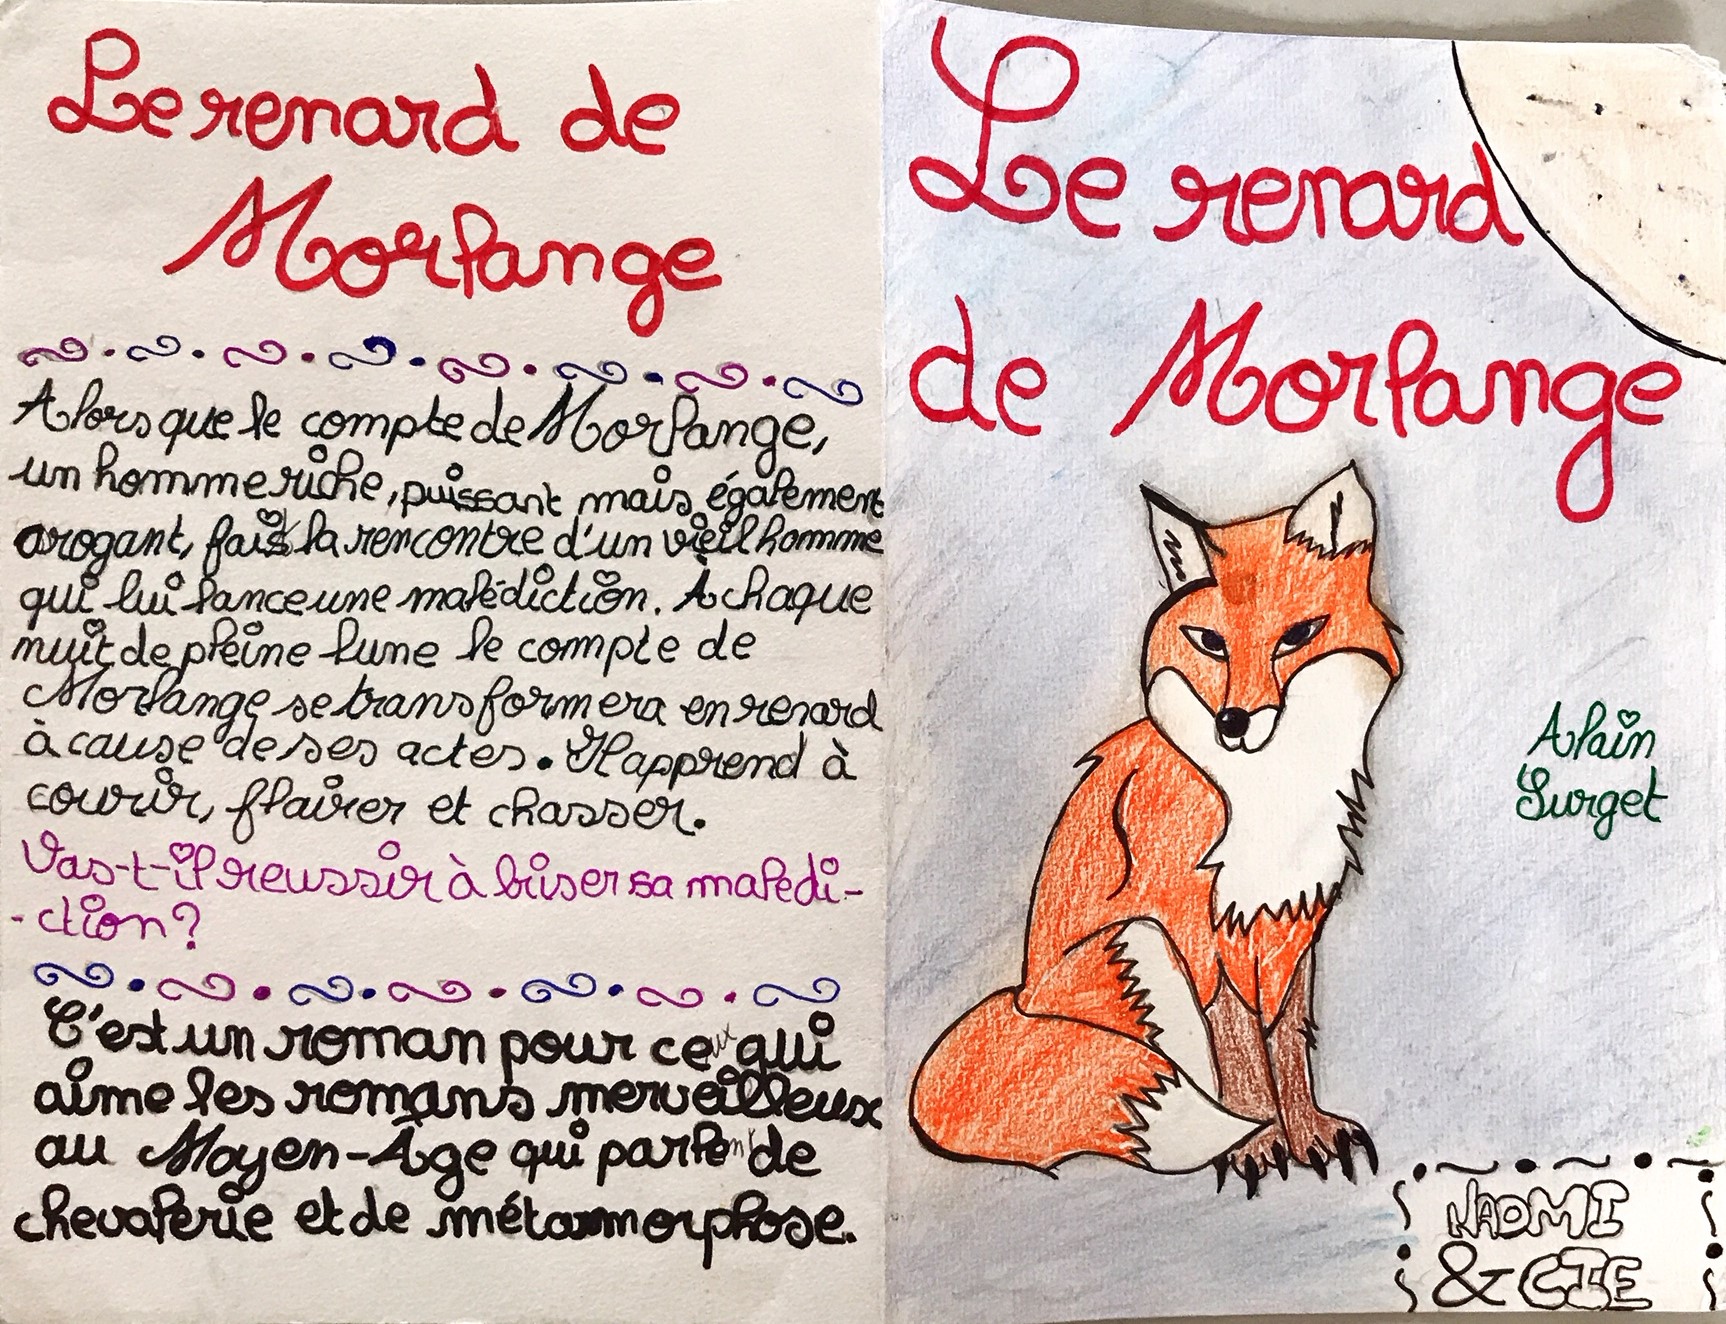 Le renard de
Morlange
Alors que le compte de Morlange,
un homme riche, puissant mais également
arogant, fais la rencontre d'un vieil homme
qui lui lance une malédiction. À chaque
nuit de pleine lune le compte de
Morlange se transformera en renard
à cause de ses actes. Il apprend à
courir, flairer et chasser.
Vas-t-il reussir à briser sa malédi-
-ction?
C'est un roman pour ceux qui
aime les romans merveilleux
au Moyen-Âge qui parlent de
chevalerie et de métamorphose.
Le renard
de Morlange
Alain
Surget
NAOMI
& CIE